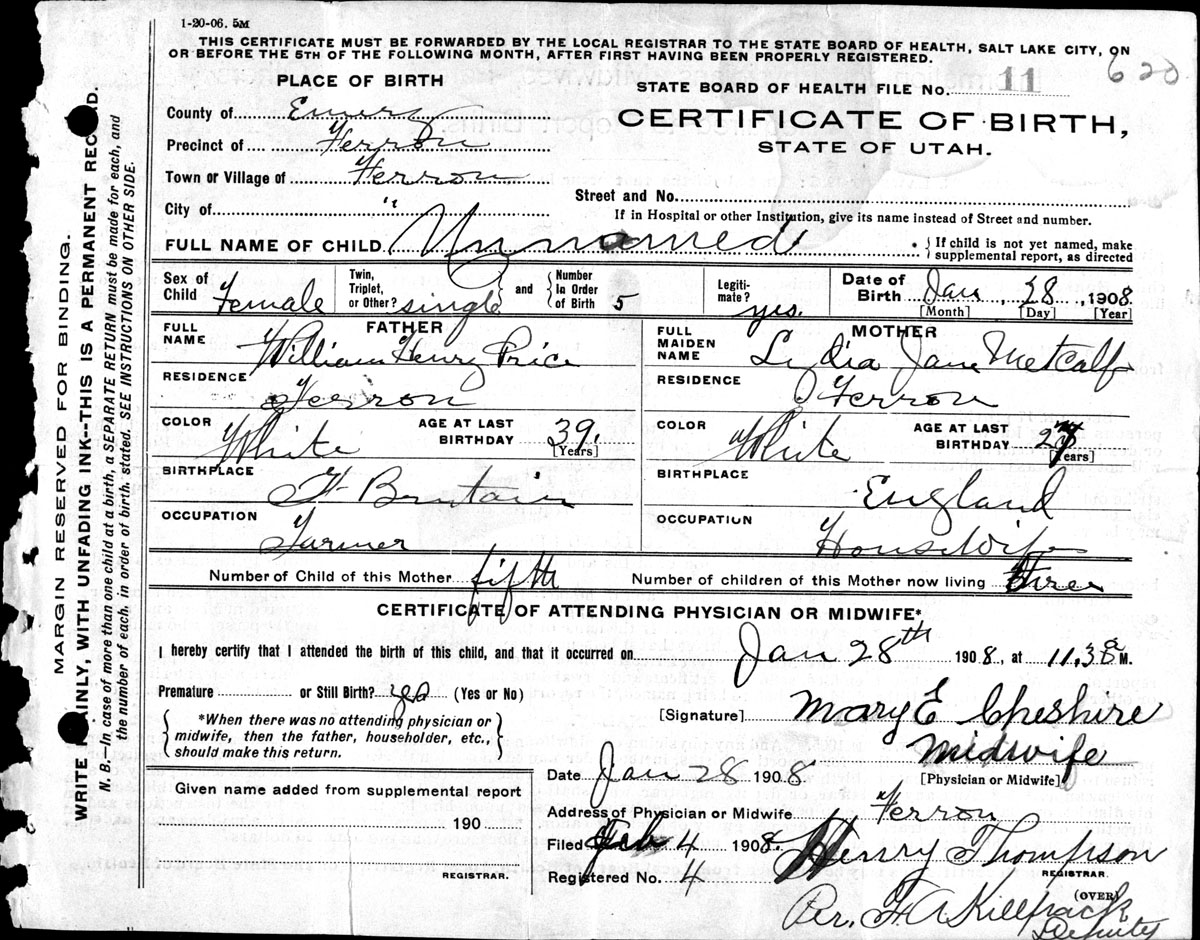 1-20-06. 5M
THIS CERTIFICATE MUST BE FORWARDED BY THE LOCAL REGISTRAR TO THE STATE BOARD OF HEALTH, SALT LAKE CITY, ON
OR BEFORE THE 5TH OF THE FOLLOWING MONTH, AFTER FIRST HAVING BEEN PROPERLY REGISTERED.
620
PLACE OF BIRTH
STATE BOARD OF HEALTH FILE No. 11
County of Emery
CERTIFICATE OF BIRTH,
Precinct of Ferron
STATE OF UTAH.
Town or Village of Ferron
Street and No.
City of "
If in Hospital or other Institution, give its name instead of Street and number.
FULL NAME OF CHILD Unnamed
If child is not yet named, make
supplemental report, as directed
Sex of Child Female
Twin, Triplet, or Other? single
and Number In Order of Birth 5
Legiti-mate? yes.
Date of Birth Jan 28, 1908.
[Month] [Day] [Year]
FATHER
FULL NAME William Henry Price
RESIDENCE Ferron
COLOR White
AGE AT LAST BIRTHDAY 39. [Years]
BIRTHPLACE Britain
OCCUPATION Farmer
MOTHER
FULL MAIDEN NAME Lydia Jane Metcalf
RESIDENCE Ferron
COLOR White
AGE AT LAST BIRTHDAY [Years]
BIRTHPLACE England
OCCUPATION Housewife
Number of Child of this Mother fifth
Number of children of this Mother now living three
CERTIFICATE OF ATTENDING PHYSICIAN OR MIDWIFE*
I hereby certify that I attended the birth of this child, and that it occurred on Jan 28th 1908, at 11.38 a M.
Premature or Still Birth? yes (Yes or No)
*When there was no attending physician or
midwife, then the father, householder, etc.,
should make this return.
[Signature] Mary E Cheshire
Midwife
[Physician or Midwife]
Date Jan 28 1908
Address of Physician or Midwife Ferron
Filed Feb 4 1908. Henry Thompson
REGISTRAR.
Registered No. 4
(OVER)
Per. F. A Killpack
Deputy
Given name added from supplemental report
190
REGISTRAR.
MARGIN RESERVED FOR BINDING.
WRITE PLAINLY, WITH UNFADING INK--THIS IS A PERMANENT RECORD.
N. B.—In case of more than one child at a birth, a SEPARATE RETURN must be made for each, and
the number of each, in order of birth, stated. SEE INSTRUCTIONS ON OTHER SIDE.